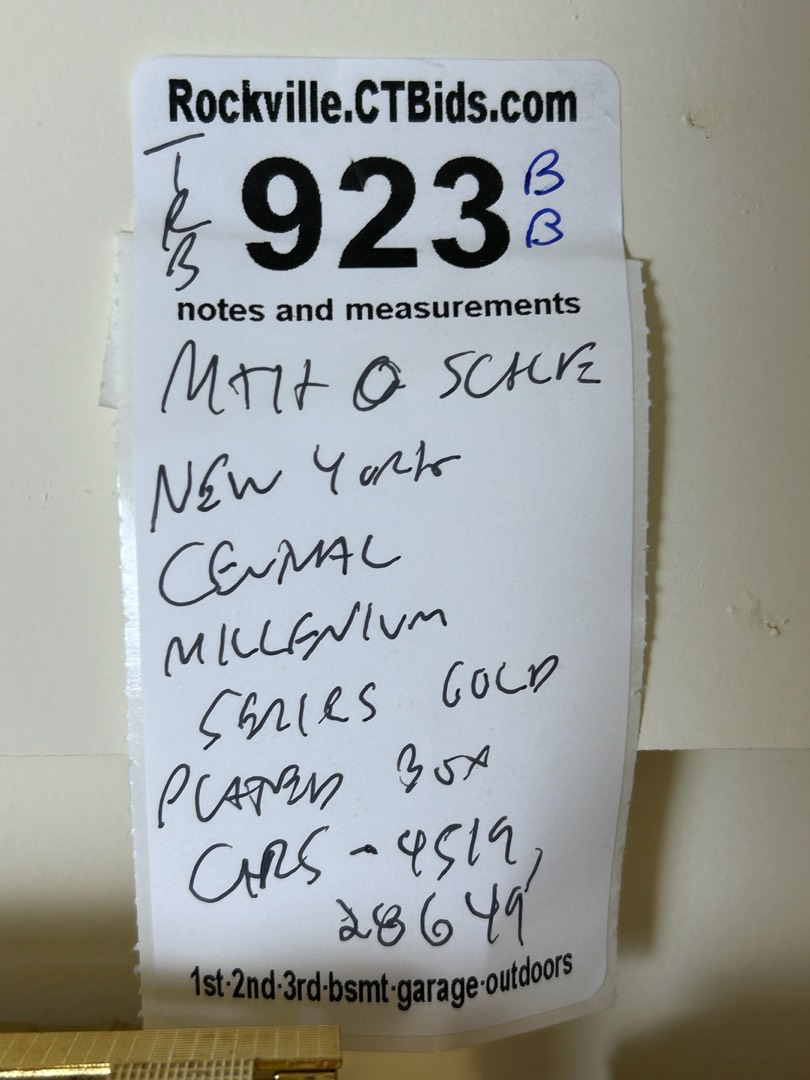 Rockville.CTBids.com
TRB
923
BB
notes and measurements
MTH O SCALE
NEW YORK
CENTRAL
MILLENIUM
SERIES GOLD
PLATED BOX
CARS - 4519,
28649
1st·2nd·3rd·bsmt·garage·outdoors